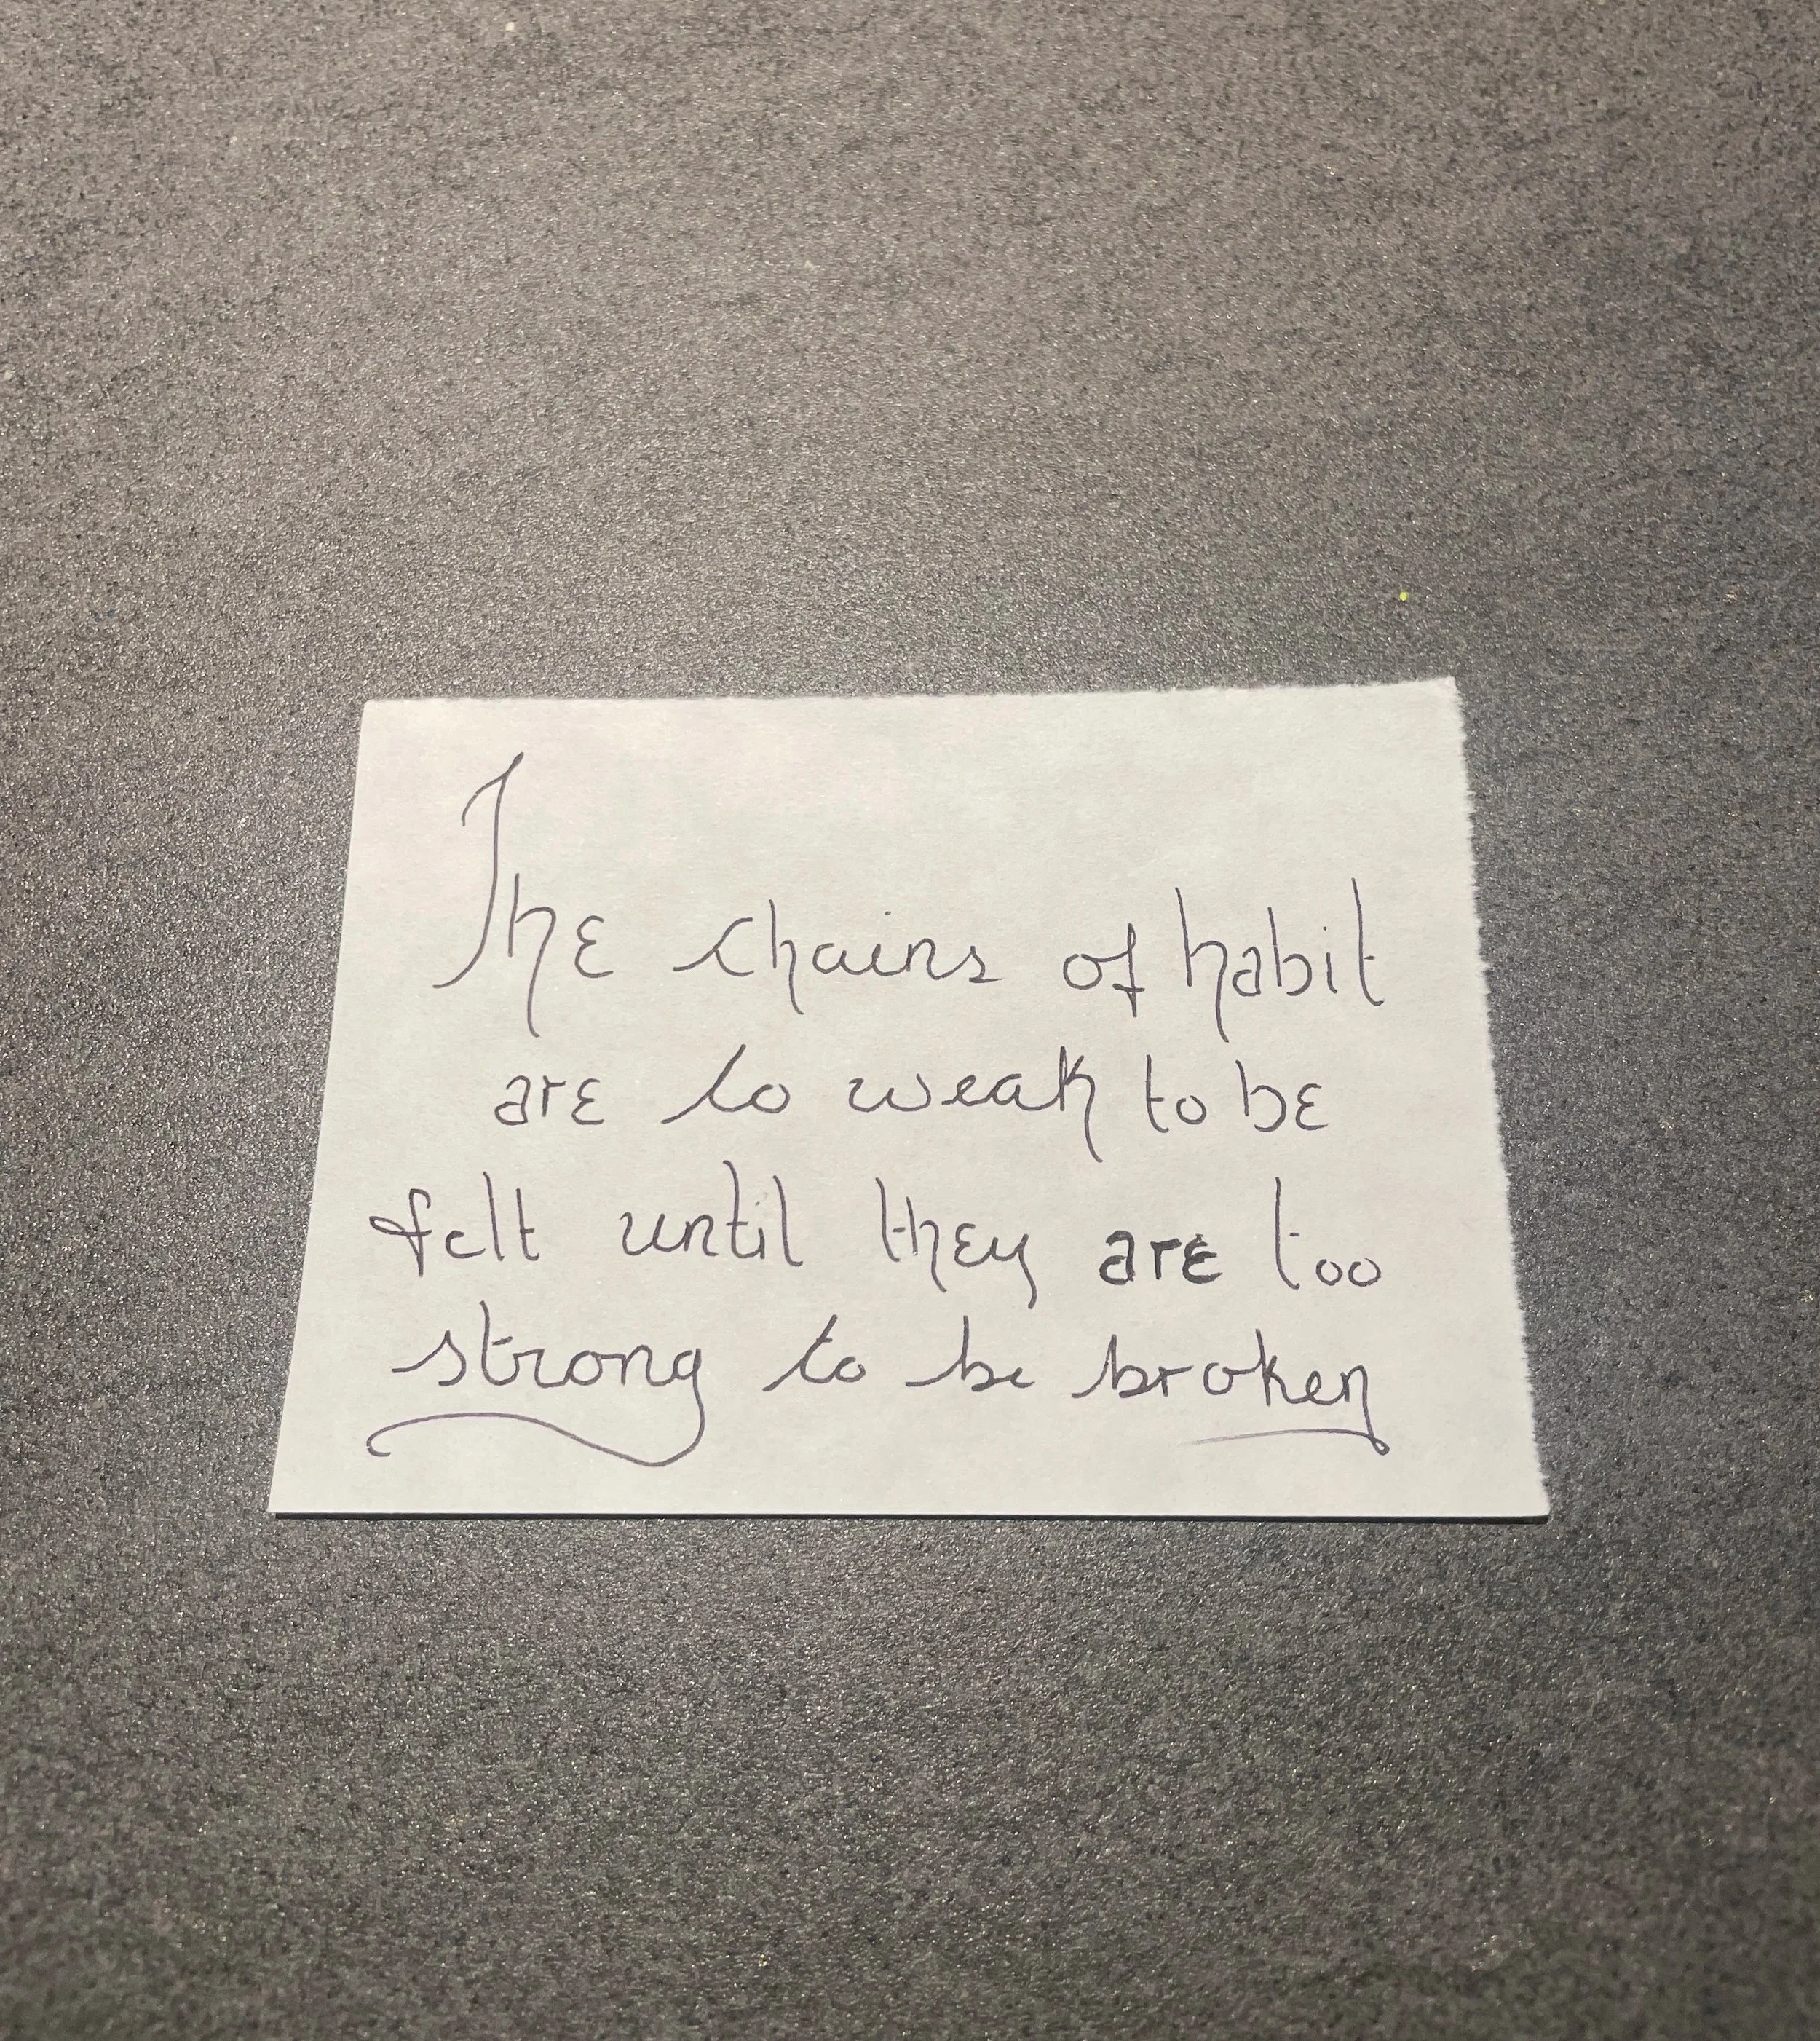 The chains of habit
are to weak to be
felt until they are too
strong to be broken